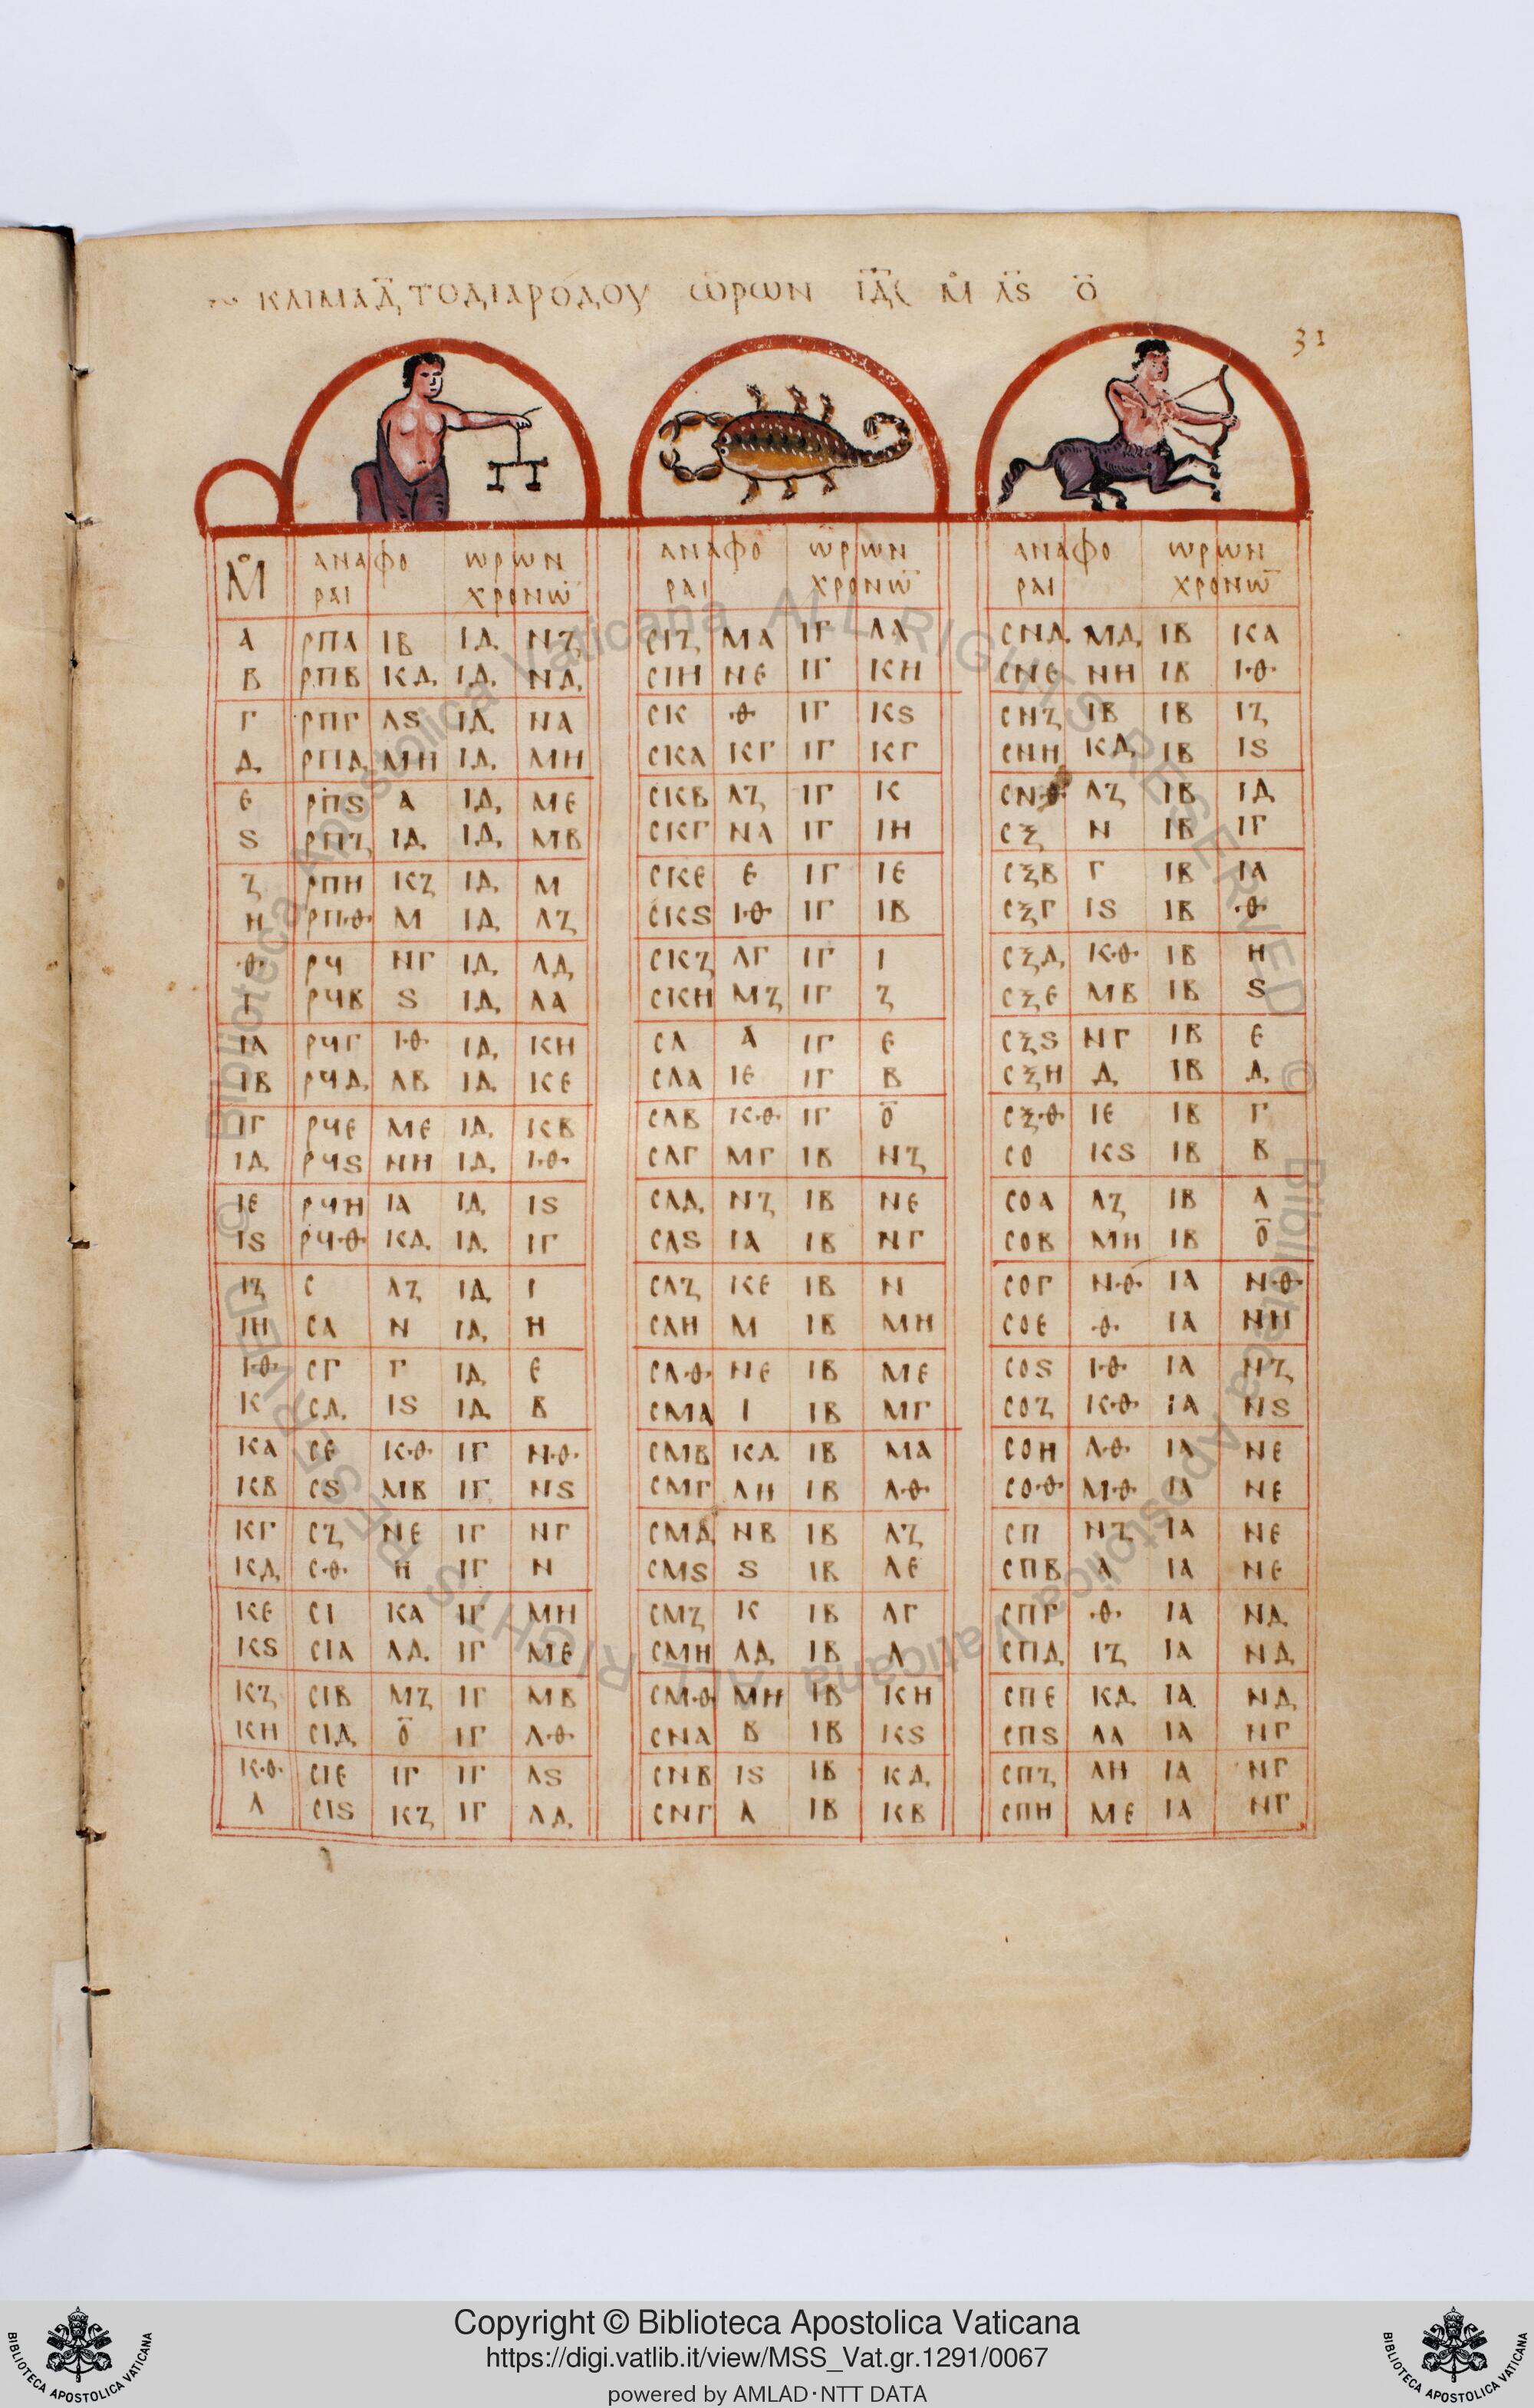 ΚΛΙΜΑ Δ̅ ΤΟ ΔΙΑ ΡΟΔΟΥ ΩΡΩΝ ΙΔ𐅵 Μ̊ ΛϚ Ο̅
31
Μ̊ ΑΝΑΦΟ ΩΡΩΝ ΑΝΑΦΟ ΩΡΩΝ ΑΝΑΦΟ ΩΡΩΝ
ΡΑΙ ΧΡΟΝΩ̅ ΡΑΙ ΧΡΟΝΩ̅ ΡΑΙ ΧΡΟΝΩ̅
Α ΡΠΑ ΙΒ ΙΔ ΝΖ ΣΙΖ ΜΑ ΙΓ ΛΑ ΣΝΔ ΜΔ ΙΒ ΚΑ
Β ΡΠΒ ΚΔ ΙΔ ΝΔ ΣΙΗ ΝΕ ΙΓ ΚΗ ΣΝΕ ΝΗ ΙΒ ΙΘ
Γ ΡΠΓ ΛϚ ΙΔ ΝΑ ΣΚ Θ ΙΓ ΚϚ ΣΝΖ ΙΒ ΙΒ ΙΖ
Δ ΡΠΔ ΜΗ ΙΔ ΜΗ ΣΚΑ ΚΓ ΙΓ ΚΓ ΣΝΗ ΚΔ ΙΒ ΙϚ
Ε ΡΠϚ Α ΙΔ ΜΕ ΣΚΒ ΛΖ ΙΓ Κ ΣΝΘ ΛΖ ΙΒ ΙΔ
Ϛ ΡΠΖ ΙΔ ΙΔ ΜΒ ΣΚΓ ΝΑ ΙΓ ΙΗ ΣΞ Ν ΙΒ ΙΓ
Ζ ΡΠΗ ΚΖ ΙΔ Μ ΣΚΕ Ε ΙΓ ΙΕ ΣΞΒ Γ ΙΒ ΙΑ
Η ΡΠΘ Μ ΙΔ ΛΖ ΣΚϚ ΙΘ ΙΓ ΙΒ ΣΞΓ ΙϚ ΙΒ Θ
Θ ΡϞ ΝΓ ΙΔ ΛΔ ΣΚΖ ΛΓ ΙΓ Ι ΣΞΔ ΚΘ ΙΒ Η
Ι ΡϞΒ Ϛ ΙΔ ΛΑ ΣΚΗ ΜΖ ΙΓ Ζ ΣΞΕ ΜΒ ΙΒ Ϛ
ΙΑ ΡϞΓ ΙΘ ΙΔ ΚΗ ΣΛ Α ΙΓ Ε ΣΞϚ ΝΓ ΙΒ Ε
ΙΒ ΡϞΔ ΛΒ ΙΔ ΚΕ ΣΛΑ ΙΕ ΙΓ Β ΣΞΗ Δ ΙΒ Δ
ΙΓ ΡϞΕ ΜΕ ΙΔ ΚΒ ΣΛΒ ΚΘ ΙΓ Ο̅ ΣΞΘ ΙΕ ΙΒ Γ
ΙΔ ΡϞϚ ΝΗ ΙΔ ΙΘ ΣΛΓ ΜΓ ΙΒ ΝΖ ΣΟ ΚϚ ΙΒ Β
ΙΕ ΡϞΗ ΙΑ ΙΔ ΙϚ ΣΛΔ ΝΖ ΙΒ ΝΕ ΣΟΑ ΛΖ ΙΒ Α
ΙϚ ΡϞΘ ΚΔ ΙΔ ΙΓ ΣΛϚ ΙΑ ΙΒ ΝΓ ΣΟΒ ΜΗ ΙΒ Ο̅
ΙΖ Σ ΛΖ ΙΔ Ι ΣΛΖ ΚΕ ΙΒ Ν ΣΟΓ ΝΘ ΙΑ ΝΘ
ΙΗ ΣΑ Ν ΙΔ Η ΣΛΗ Μ ΙΒ ΜΗ ΣΟΕ Θ ΙΑ ΝΗ
ΙΘ ΣΓ Γ ΙΔ Ε ΣΛΘ ΝΕ ΙΒ ΜΕ ΣΟϚ ΙΘ ΙΑ ΝΖ
Κ ΣΔ ΙϚ ΙΔ Β ΣΜΑ Ι ΙΒ ΜΓ ΣΟΖ ΚΘ ΙΑ ΝϚ
ΚΑ ΣΕ ΚΘ ΙΓ ΝΘ ΣΜΒ ΚΔ ΙΒ ΜΑ ΣΟΗ ΛΘ ΙΑ ΝΕ
ΚΒ ΣϚ ΜΒ ΙΓ ΝϚ ΣΜΓ ΛΗ ΙΒ ΛΘ ΣΟΘ ΜΘ ΙΑ ΝΕ
ΚΓ ΣΖ ΝΕ ΙΓ ΝΓ ΣΜΔ ΝΒ ΙΒ ΛΖ ΣΠ ΝΖ ΙΑ ΝΕ
ΚΔ ΣΘ Η ΙΓ Ν ΣΜϚ Ϛ ΙΒ ΛΕ ΣΠΒ Α ΙΑ ΝΕ
ΚΕ ΣΙ ΚΑ ΙΓ ΜΗ ΣΜΖ Κ ΙΒ ΛΓ ΣΠΓ Θ ΙΑ ΝΔ
ΚϚ ΣΙΑ ΛΔ ΙΓ ΜΕ ΣΜΗ ΛΔ ΙΒ Λ ΣΠΔ ΙΖ ΙΑ ΝΔ
ΚΖ ΣΙΒ ΜΖ ΙΓ ΜΒ ΣΜΘ ΜΗ ΙΒ ΚΗ ΣΠΕ ΚΔ ΙΑ ΝΔ
ΚΗ ΣΙΔ Ο̅ ΙΓ ΛΘ ΣΝΑ Β ΙΒ ΚϚ ΣΠϚ ΛΑ ΙΑ ΝΓ
ΚΘ ΣΙΕ ΙΓ ΙΓ ΛϚ ΣΝΒ ΙϚ ΙΒ ΚΔ ΣΠΖ ΛΗ ΙΑ ΝΓ
Λ ΣΙϚ ΚΖ ΙΓ ΛΔ ΣΝΓ Λ ΙΒ ΚΒ ΣΠΗ ΜΕ ΙΑ ΝΓ
© Biblioteca Apostolica Vaticana ALL RIGHTS RESERVED © Biblioteca Apostolica Vaticana ALL RIGHTS RESERVED
Copyright © Biblioteca Apostolica Vaticana
https://digi.vatlib.it/view/MSS_Vat.gr.1291/0067
powered by AMLAD·NTT DATA
BIBLIOTECA APOSTOLICA VATICANA
BIBLIOTECA APOSTOLICA VATICANA